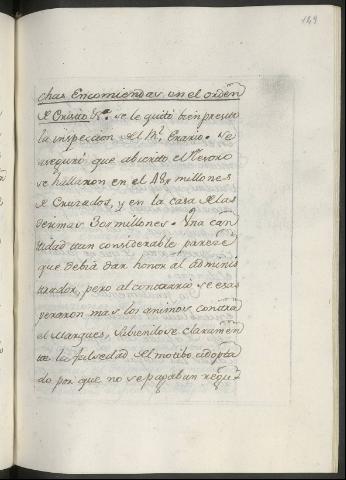 149
chas Encomiendas en el orden
de Cristo &a. se le quitó bien presto
la inspeccion del Rl. Erario. Se
aseguró que abierto el Tesoro
se hallaron en el 48 millones
de Cruzados, y en la casa de las
dermas 30 millones. Una can
tidad tan considerable parece
que debia dar honor al adminis
trador, pero al contrario se exas
peraron mas los animos contra
el Marques, sabiendose claramen
te la falsedad del motibo adopta
do por que no se pagaban